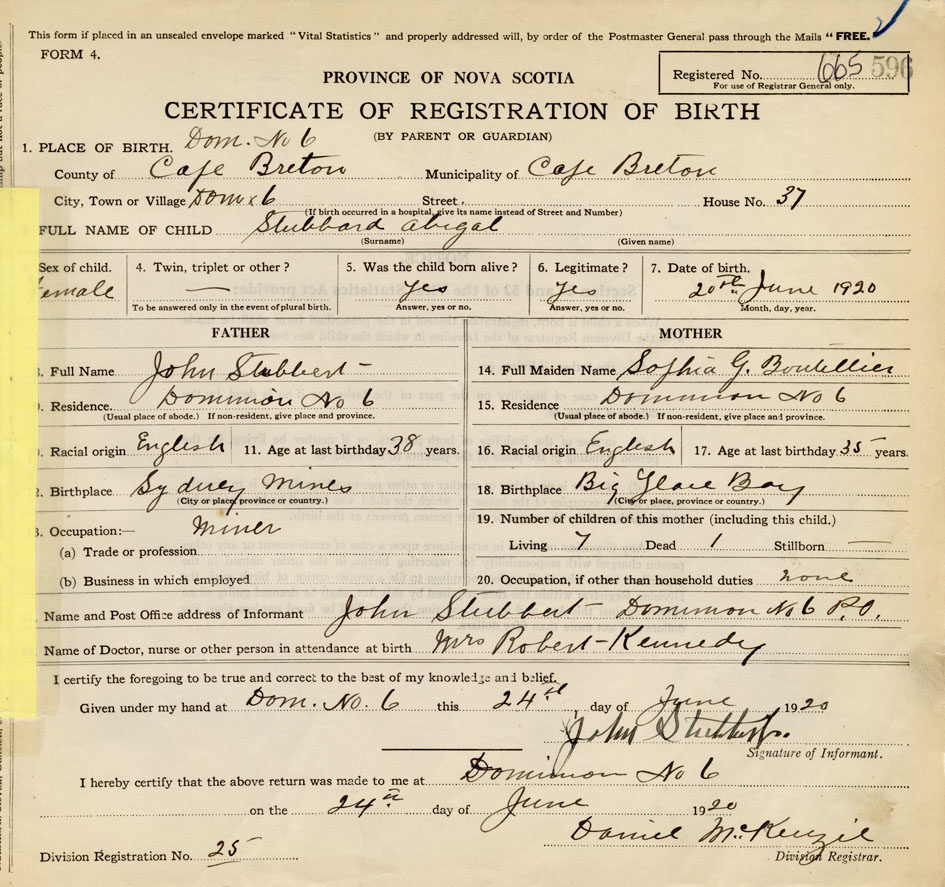 This form if placed in an unsealed envelope marked "Vital Statistics" and properly addressed will, by order of the Postmaster General pass through the Mails "FREE."
FORM 4.
Registered No. 665 596
For use of Registrar General only.
PROVINCE OF NOVA SCOTIA
CERTIFICATE OF REGISTRATION OF BIRTH
(BY PARENT OR GUARDIAN)
1. PLACE OF BIRTH. Dom. No 6
County of Cape Breton Municipality of Cape Breton
City, Town or Village Dom 6 Street, House No. 37
(If birth occurred in a hospital, give its name instead of Street and Number)
FULL NAME OF CHILD Stubbard Abigal
(Surname) (Given name)
Sex of child. 4. Twin, triplet or other? 5. Was the child born alive? 6. Legitimate? 7. Date of birth.
emale — yes yes 20th June 1920
To be answered only in the event of plural birth. Answer, yes or no. Answer, yes or no. Month, day, year.
FATHER MOTHER
Full Name John Stubbert 14. Full Maiden Name Sophia G. Boutellier
Residence Dominion No 6 15. Residence Dominion No 6
(Usual place of abode.) If non-resident, give place and province. (Usual place of abode.) If non-resident, give place and province.
Racial origin English 11. Age at last birthday 38 years. 16. Racial origin English 17. Age at last birthday 35 years.
Birthplace Sydney Mines 18. Birthplace Big Glace Bay
(City or place, province or country.) (City or place, province or country.)
Occupation:— Miner 19. Number of children of this mother (including this child.)
(a) Trade or profession Living 7 Dead 1 Stillborn —
(b) Business in which employed 20. Occupation, if other than household duties none
Name and Post Office address of Informant John Stubbert Dominion No 6 P.O.
Name of Doctor, nurse or other person in attendance at birth Mrs Robert Kennedy
I certify the foregoing to be true and correct to the best of my knowledge and belief.
Given under my hand at Dom. No. 6 this 24th day of June 1920
John Stubbert
Signature of Informant.
I hereby certify that the above return was made to me at Dominion No 6
on the 24th day of June 1920
Daniel McKenzie
Division Registration No. 25 Division Registrar.